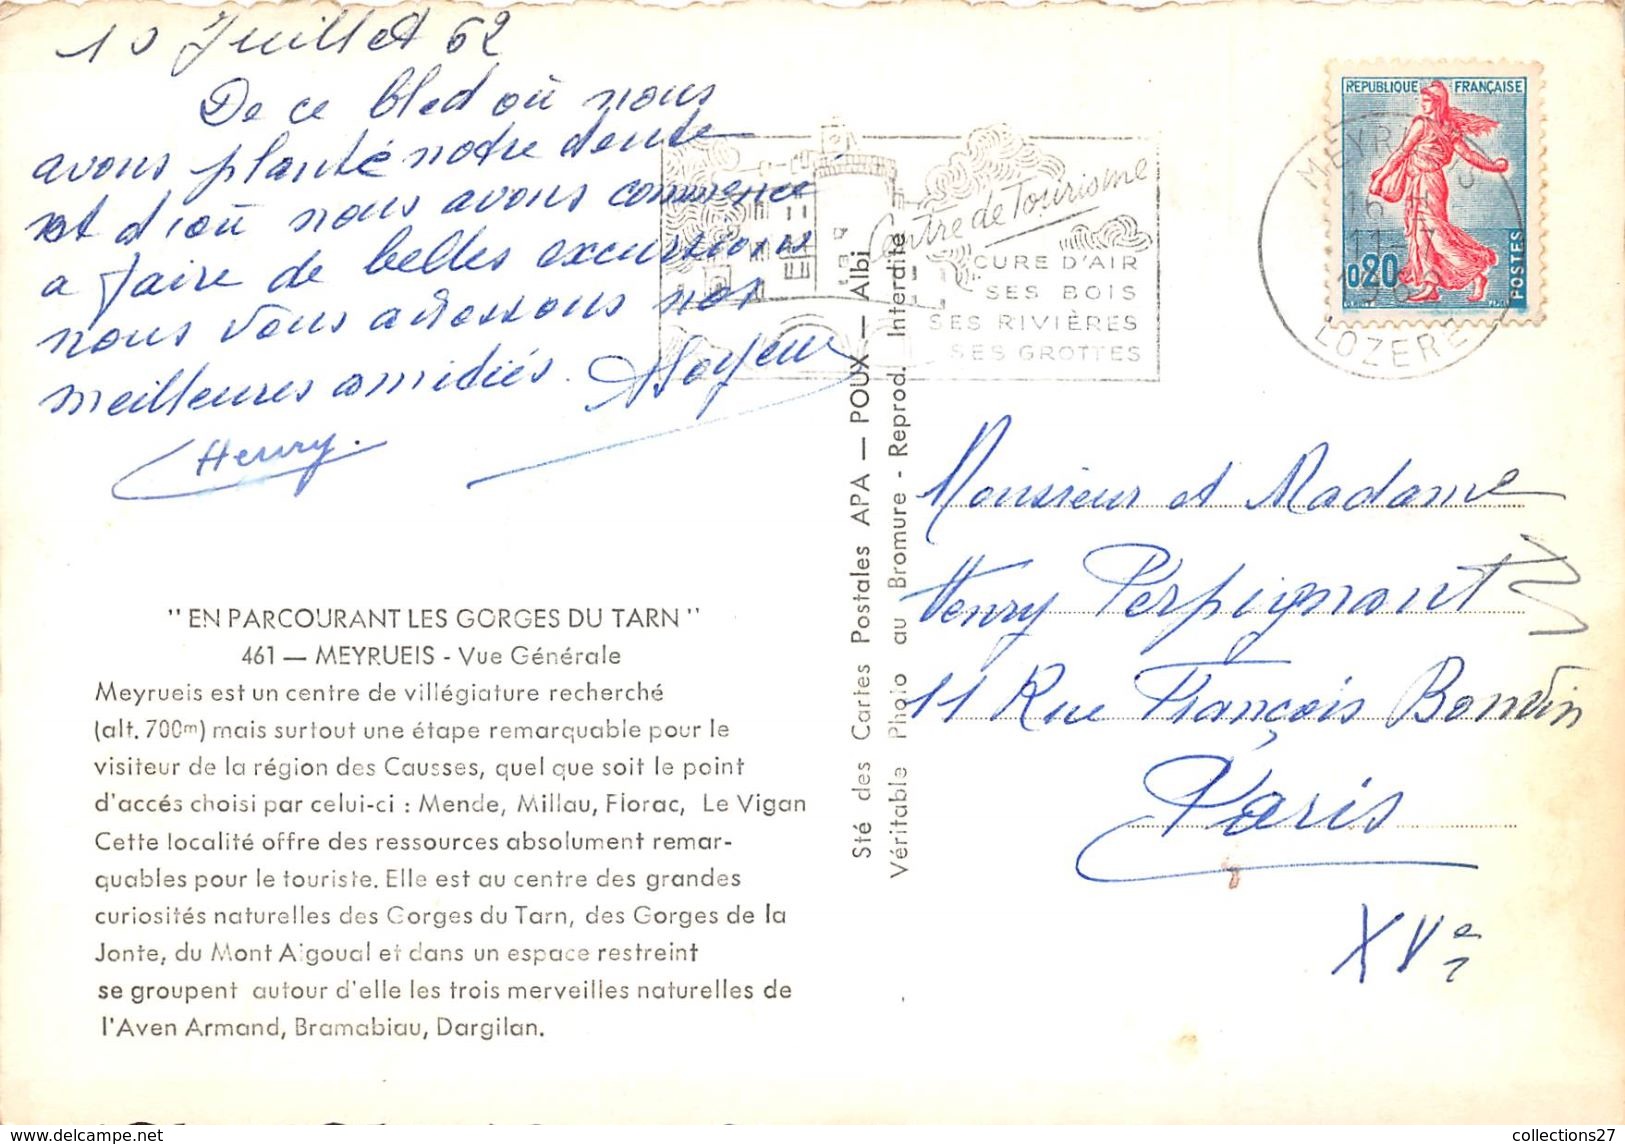 10 Juillet 62
De ce bled où nous
avons planté notre tente
et d'où nous avons commencé
a faire de belles excursions
nous vous adressons nos
meilleures amitiés.
Henry.
"EN PARCOURANT LES GORGES DU TARN"
461 — MEYRUEIS - Vue Générale
Meyrueis est un centre de villégiature recherché
(alt. 700m) mais surtout une étape remarquable pour le
visiteur de la région des Causses, quel que soit le point
d'accés choisi par celui-ci : Mende, Millau, Florac, Le Vigan
Cette localité offre des ressources absolument remar-
quables pour le touriste. Elle est au centre des grandes
curiosités naturelles des Gorges du Tarn, des Gorges de la
Jonte, du Mont Aigoual et dans un espace restreint
se groupent autour d'elle les trois merveilles naturelles de
l'Aven Armand, Bramabiau, Dargilan.
Sté des Cartes Postales APA — POUX — Albi
Véritable Photo au Bromure - Reprod. Interdite
Centre de Tourisme
CURE D'AIR
SES BOIS
SES RIVIÈRES
SES GROTTES
REPUBLIQUE FRANÇAISE
0,20
POSTES
LOZERE
Monsieur et Madame
Henry Perpignant
11 Rue François Bonvin
Paris
XVe
collections27